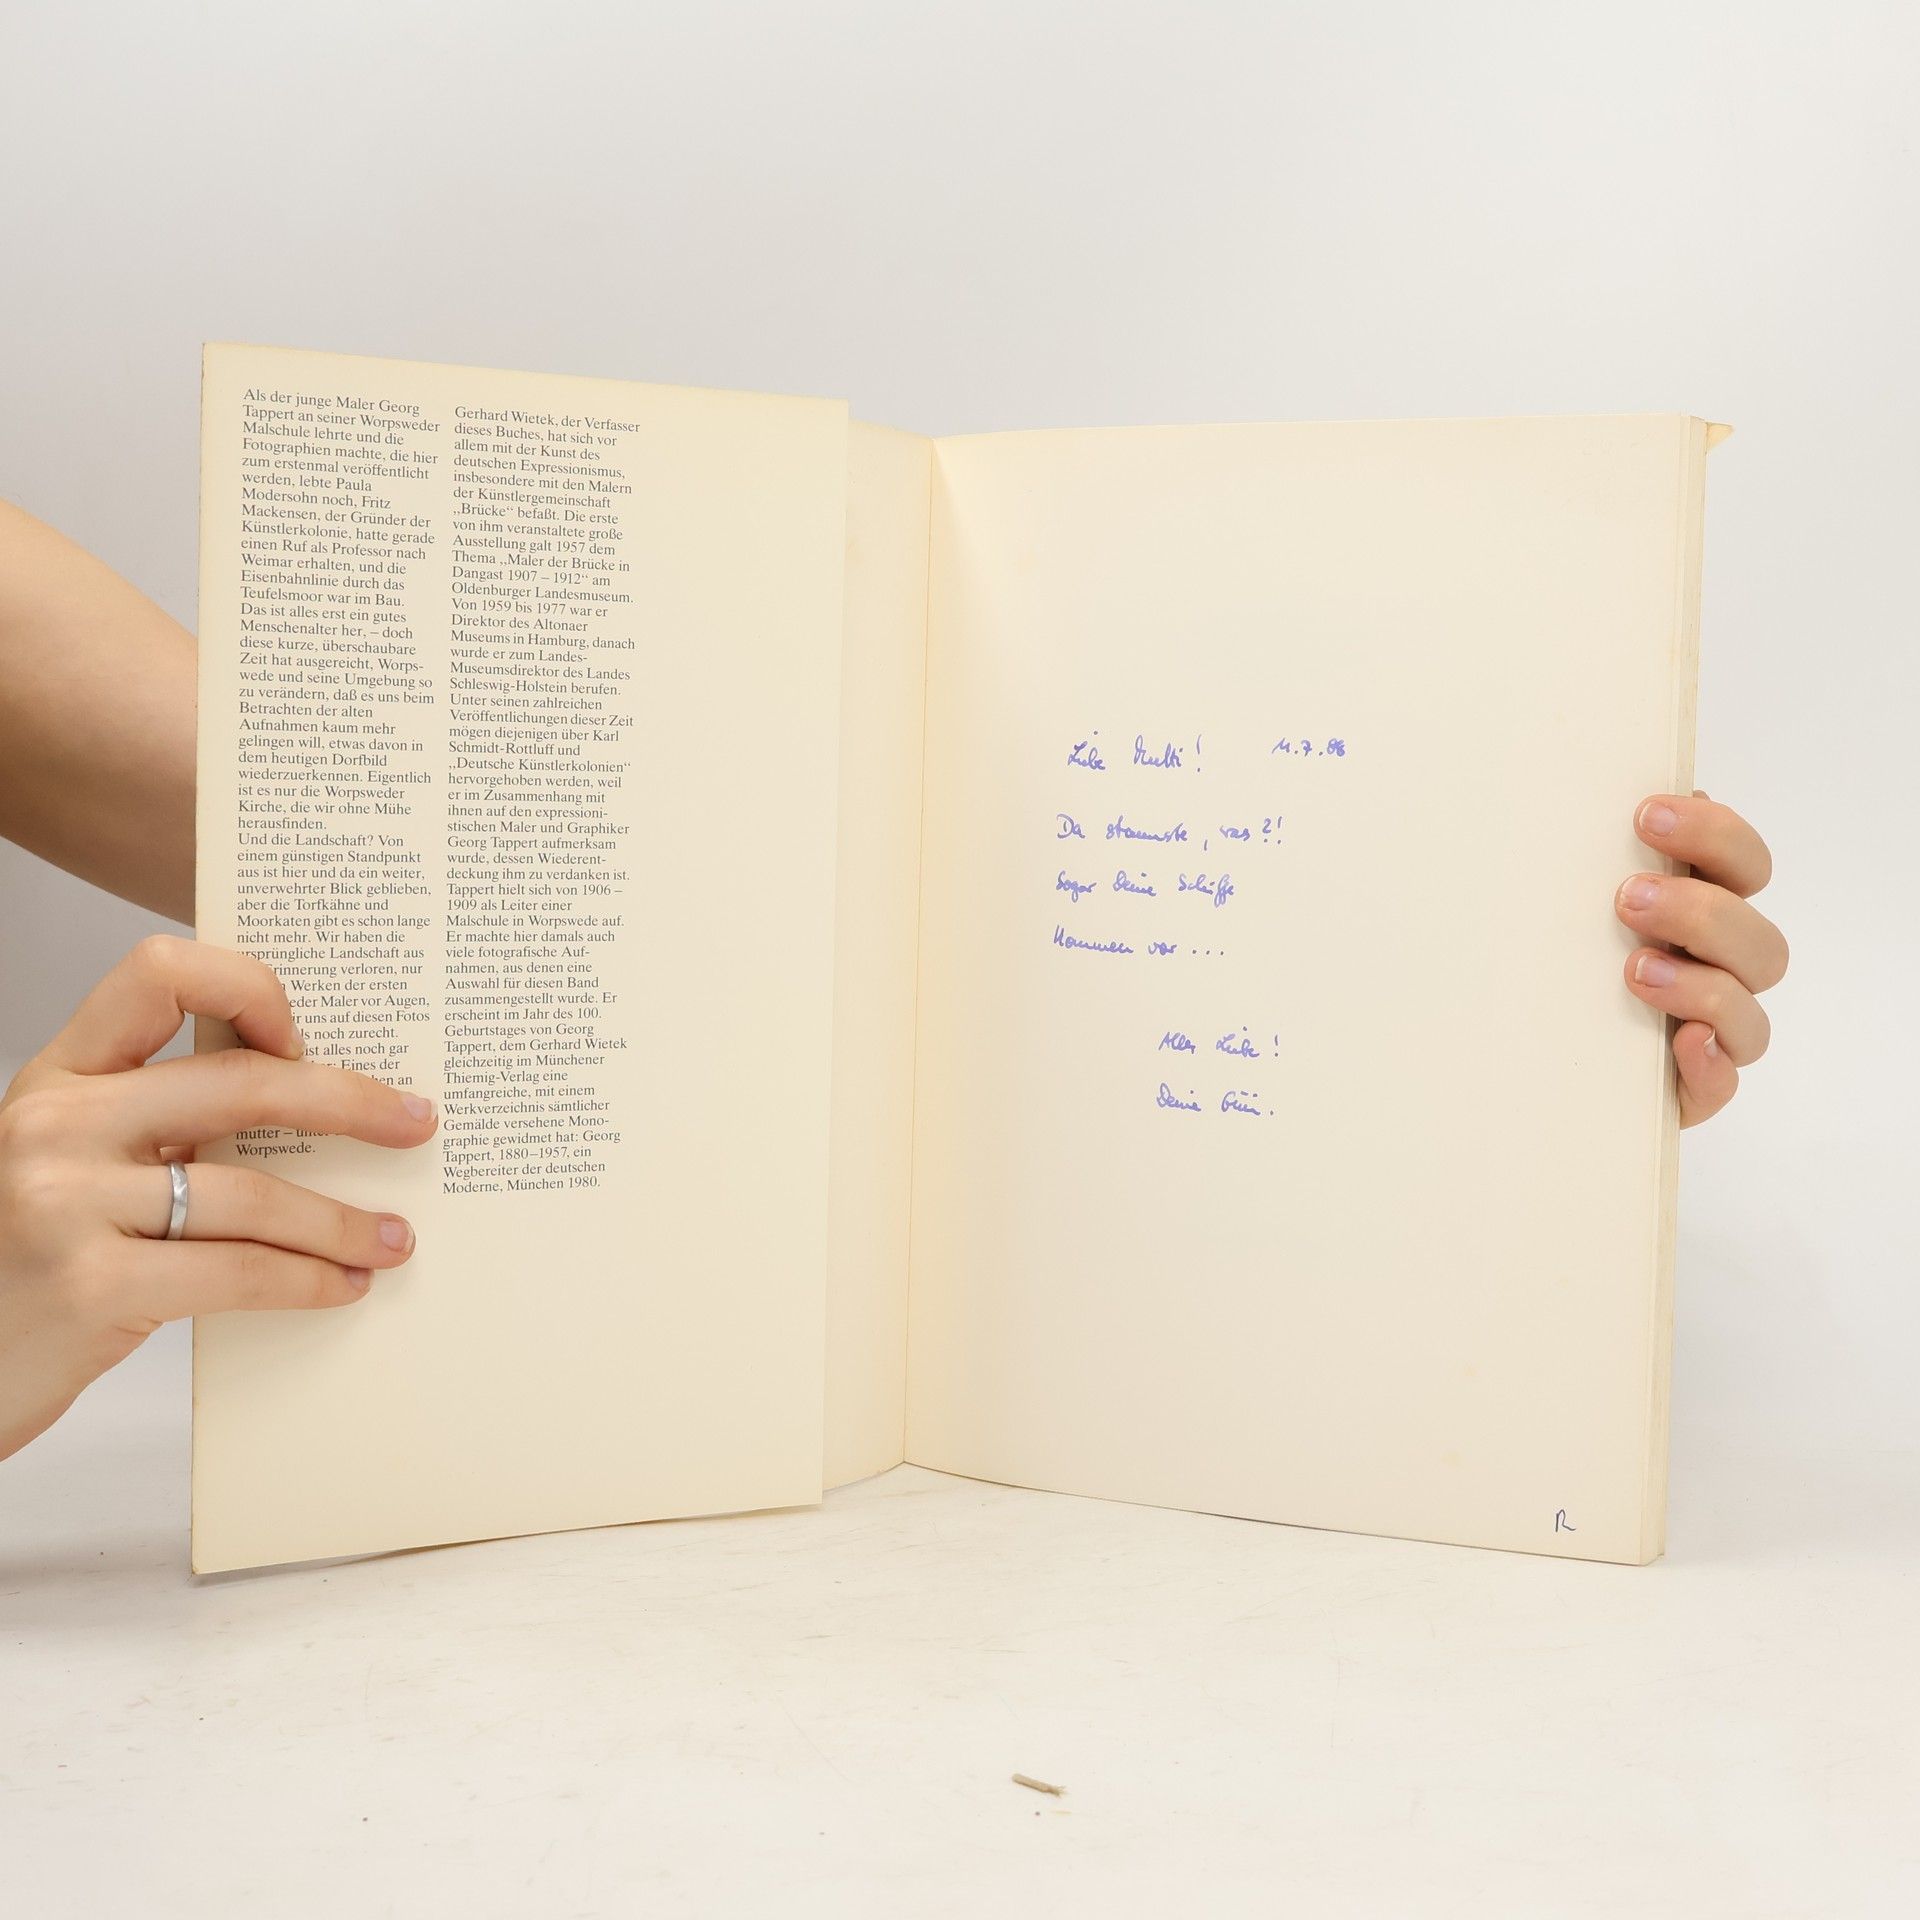 Als der junge Maler Georg
Tappert an seiner Worpsweder
Malschule lehrte und die
Fotographien machte, die hier
zum erstenmal veröffentlicht
werden, lebte Paula
Modersohn noch, Fritz
Mackensen, der Gründer der
Künstlerkolonie, hatte gerade
einen Ruf als Professor nach
Weimar erhalten, und die
Eisenbahnlinie durch das
Teufelsmoor war im Bau.
Das ist alles erst ein gutes
Menschenalter her, – doch
diese kurze, überschaubare
Zeit hat ausgereicht, Worps-
wede und seine Umgebung so
zu verändern, daß es uns beim
Betrachten der alten
Aufnahmen kaum mehr
gelingen will, etwas davon in
dem heutigen Dorfbild
wiederzuerkennen. Eigentlich
ist es nur die Worpsweder
Kirche, die wir ohne Mühe
herausfinden.
Und die Landschaft? Von
einem günstigen Standpunkt
aus ist hier und da ein weiter,
unverwehrter Blick geblieben,
aber die Torfkähne und
Moorkaten gibt es schon lange
nicht mehr. Wir haben die
ursprüngliche Landschaft aus
Erinnerung verloren, nur
Werken der ersten
Maler vor Augen,
uns auf diesen Fotos
noch zurecht.
ist alles noch gar
Eines der
an
mutter –
Worpswede.
Gerhard Wietek, der Verfasser
dieses Buches, hat sich vor
allem mit der Kunst des
deutschen Expressionismus,
insbesondere mit den Malern
der Künstlergemeinschaft
„Brücke“ befaßt. Die erste
von ihm veranstaltete große
Ausstellung galt 1957 dem
Thema „Maler der Brücke in
Dangast 1907 – 1912“ am
Oldenburger Landesmuseum.
Von 1959 bis 1977 war er
Direktor des Altonaer
Museums in Hamburg, danach
wurde er zum Landes-
Museumsdirektor des Landes
Schleswig-Holstein berufen.
Unter seinen zahlreichen
Veröffentlichungen dieser Zeit
mögen diejenigen über Karl
Schmidt-Rottluff und
„Deutsche Künstlerkolonien“
hervorgehoben werden, weil
er im Zusammenhang mit
ihnen auf den expressioni-
stischen Maler und Graphiker
Georg Tappert aufmerksam
wurde, dessen Wiederent-
deckung ihm zu verdanken ist.
Tappert hielt sich von 1906 –
1909 als Leiter einer
Malschule in Worpswede auf.
Er machte hier damals auch
viele fotografische Auf-
nahmen, aus denen eine
Auswahl für diesen Band
zusammengestellt wurde. Er
erscheint im Jahr des 100.
Geburtstages von Georg
Tappert, dem Gerhard Wietek
gleichzeitig im Münchener
Thiemig-Verlag eine
umfangreiche, mit einem
Werkverzeichnis sämtlicher
Gemälde versehene Mono-
graphie gewidmet hat: Georg
Tappert, 1880–1957, ein
Wegbereiter der deutschen
Moderne, München 1980.
Liebe Mutti! 11.7.86
Da staunste, was?!
Sogar Deine Schiffe
kommen vor ...
Alles Liebe!
Deine